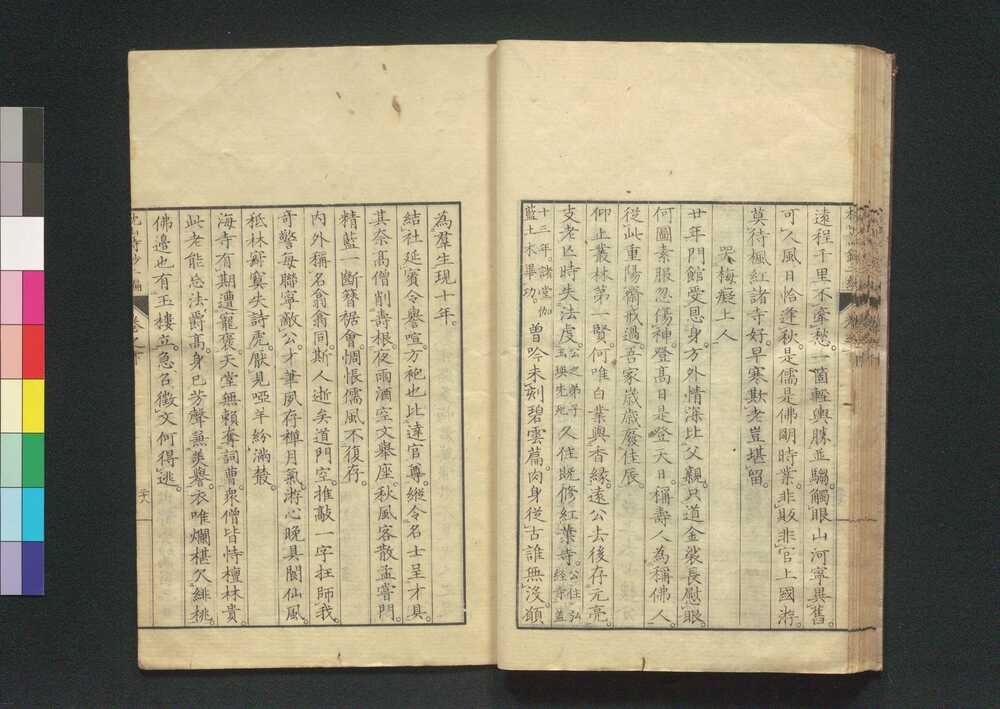 遠程千里不牽愁。一箇輕輿勝並騶。觸眼山河寧異舊。
可人風日恰逢秋。是儒是佛明時業。非販非官上國游。
莫待楓紅諸寺好。早寒欺老豈堪留。
哭梅癡上人
廿年門館受恩身。方外情深比父親。只道金裟長慰眼。
何圖素服忽傷神。登高日是登天日。稱壽人為稱佛人。
從此重陽齋戒過。吾家歲歲廢佳辰。
仰止叢林第一賢。何唯白業與香緣。遠公去後存元亮。
支老亡時失法虔。公之弟子玉渙先死久住既修紅葉寺。公住弘經寺蓋
十三年。諸堂伽藍土木畢功。曾吟未刻碧雲篇。肉身從古誰無沒。顗
為羣生現十年。
結社延賓令譽喧。方袍也比達官尊。縱令名士呈才具。
其奈高僧削壽根。夜雨酒空文舉座。秋風客散孟嘗門。
精藍一斷簪裾會。惆悵儒風不復存。
內外稱名翕翕同。斯人逝矣道門空。推敲一字狂師我。
奇警每聯寧敵公。才華夙存禪月氣。游心晚具閬仙風。
秪林寂寞失詩虎。厭見啞羊紛滿叢。
海寺有期遭寵褒。天堂無賴奪詞曹。衆僧皆恃檀林貴。
此老能忘法爵高。身已芳聲兼美譽。衣唯爛椹欠緋桃。
佛邊也有玉樓立。急召徵文何得逃。
卷之十